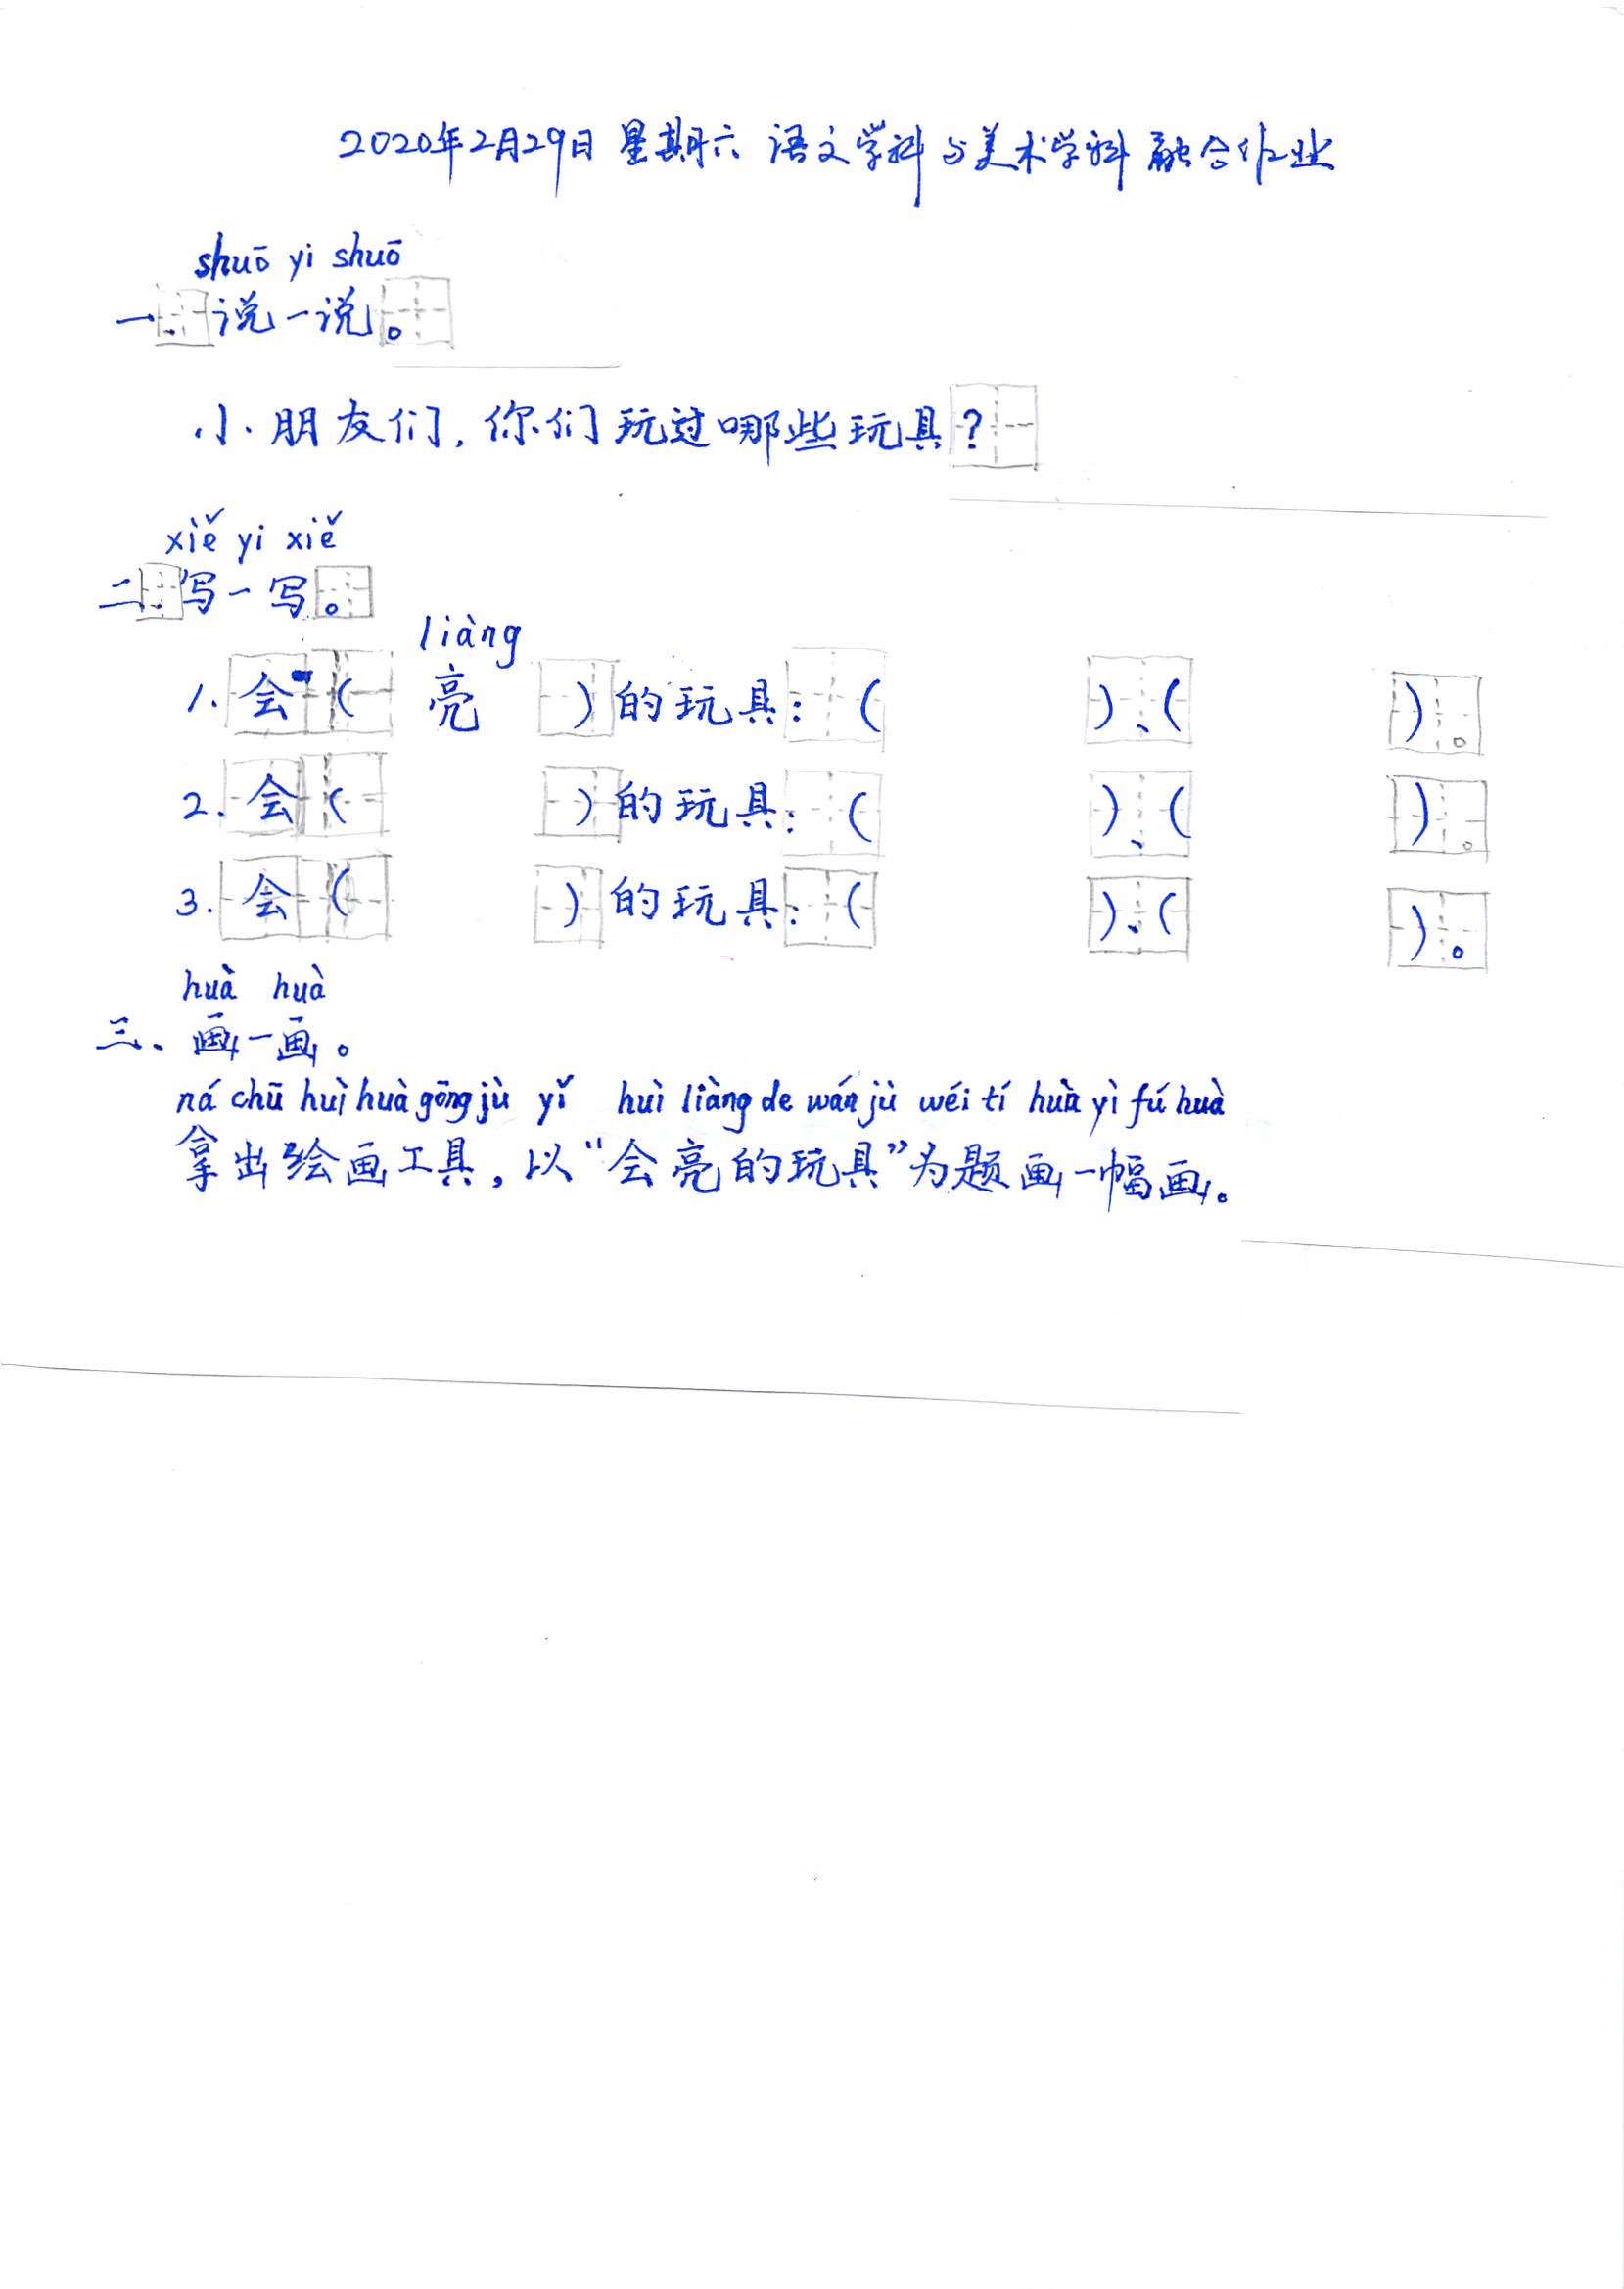 2020年2月29日 星期六 语文学科与美术学科 融合作业
shuō yi shuō
一.说一说。
小朋友们,你们玩过哪些玩具?
xiě yi xiě
二.写一写。
liàng
1.会(亮)的玩具:( )、( )。
2.会( )的玩具:( )、( )。
3.会( )的玩具:( )、( )。
huà huà
三、画一画。
ná chū huì huà gōng jù yǐ huì liàng de wán jù wéi tí huà yì fú huà
拿出绘画工具,以“会亮的玩具”为题画一幅画。